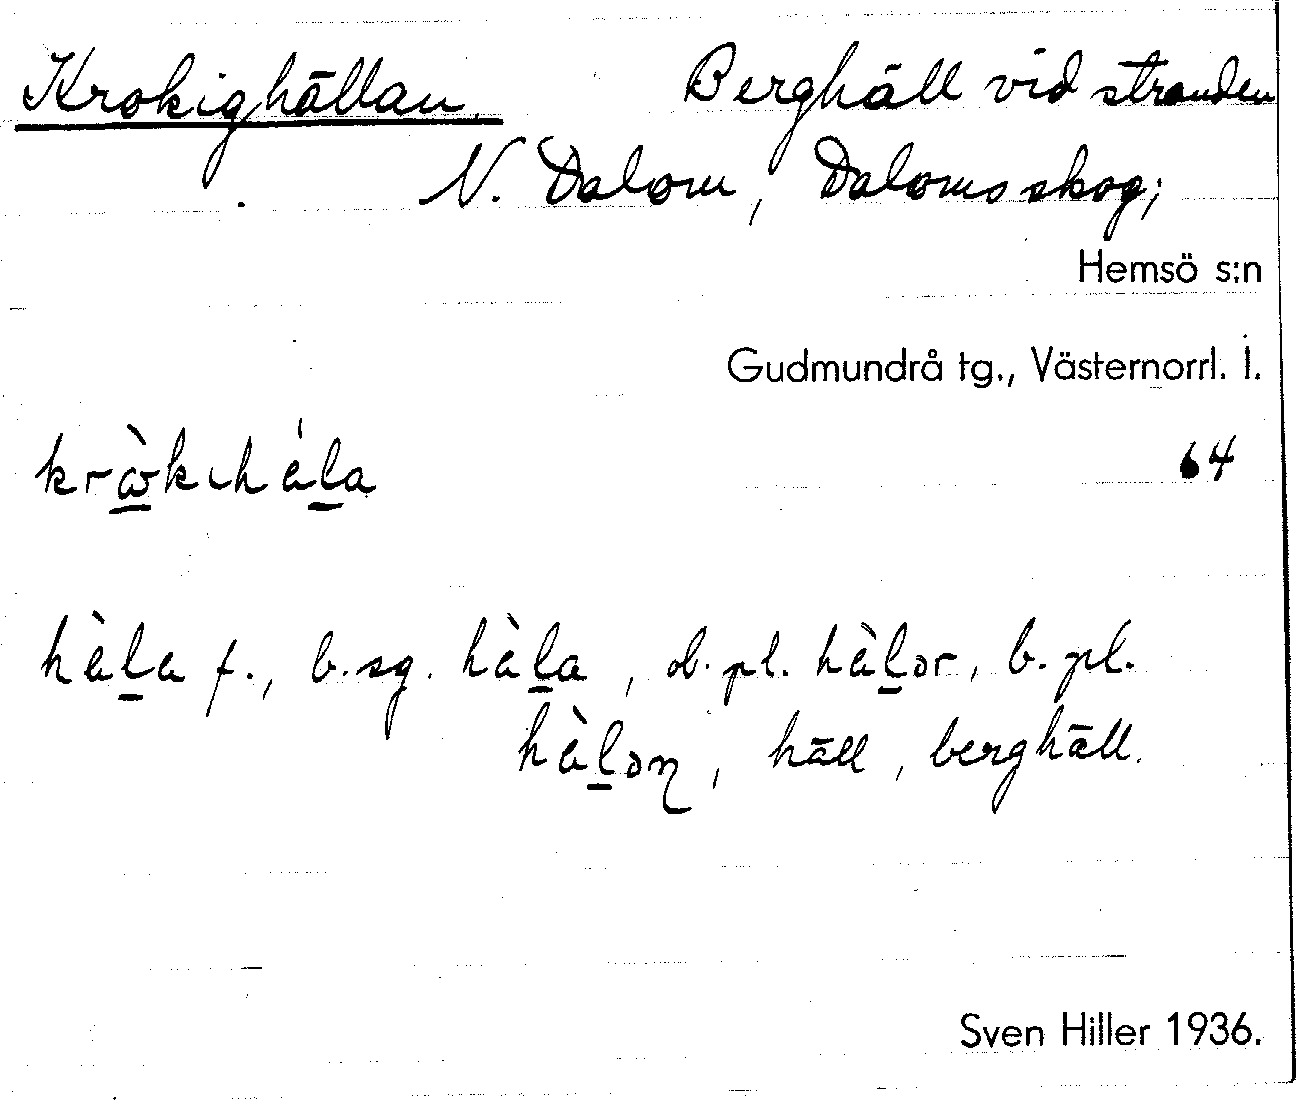 Krokighällan. Berghäll vid stranden
N. Dalom, Daloms skog;
Hemsö s:n
Gudmundrå tg., Västernorrl. l.
krὼkιhέla
64
hὲla f., b.sg. hὲla, ob. pl. hὲlər, b. pl.
hὲləṇ, häll, berghäll.
Sven Hiller 1936.